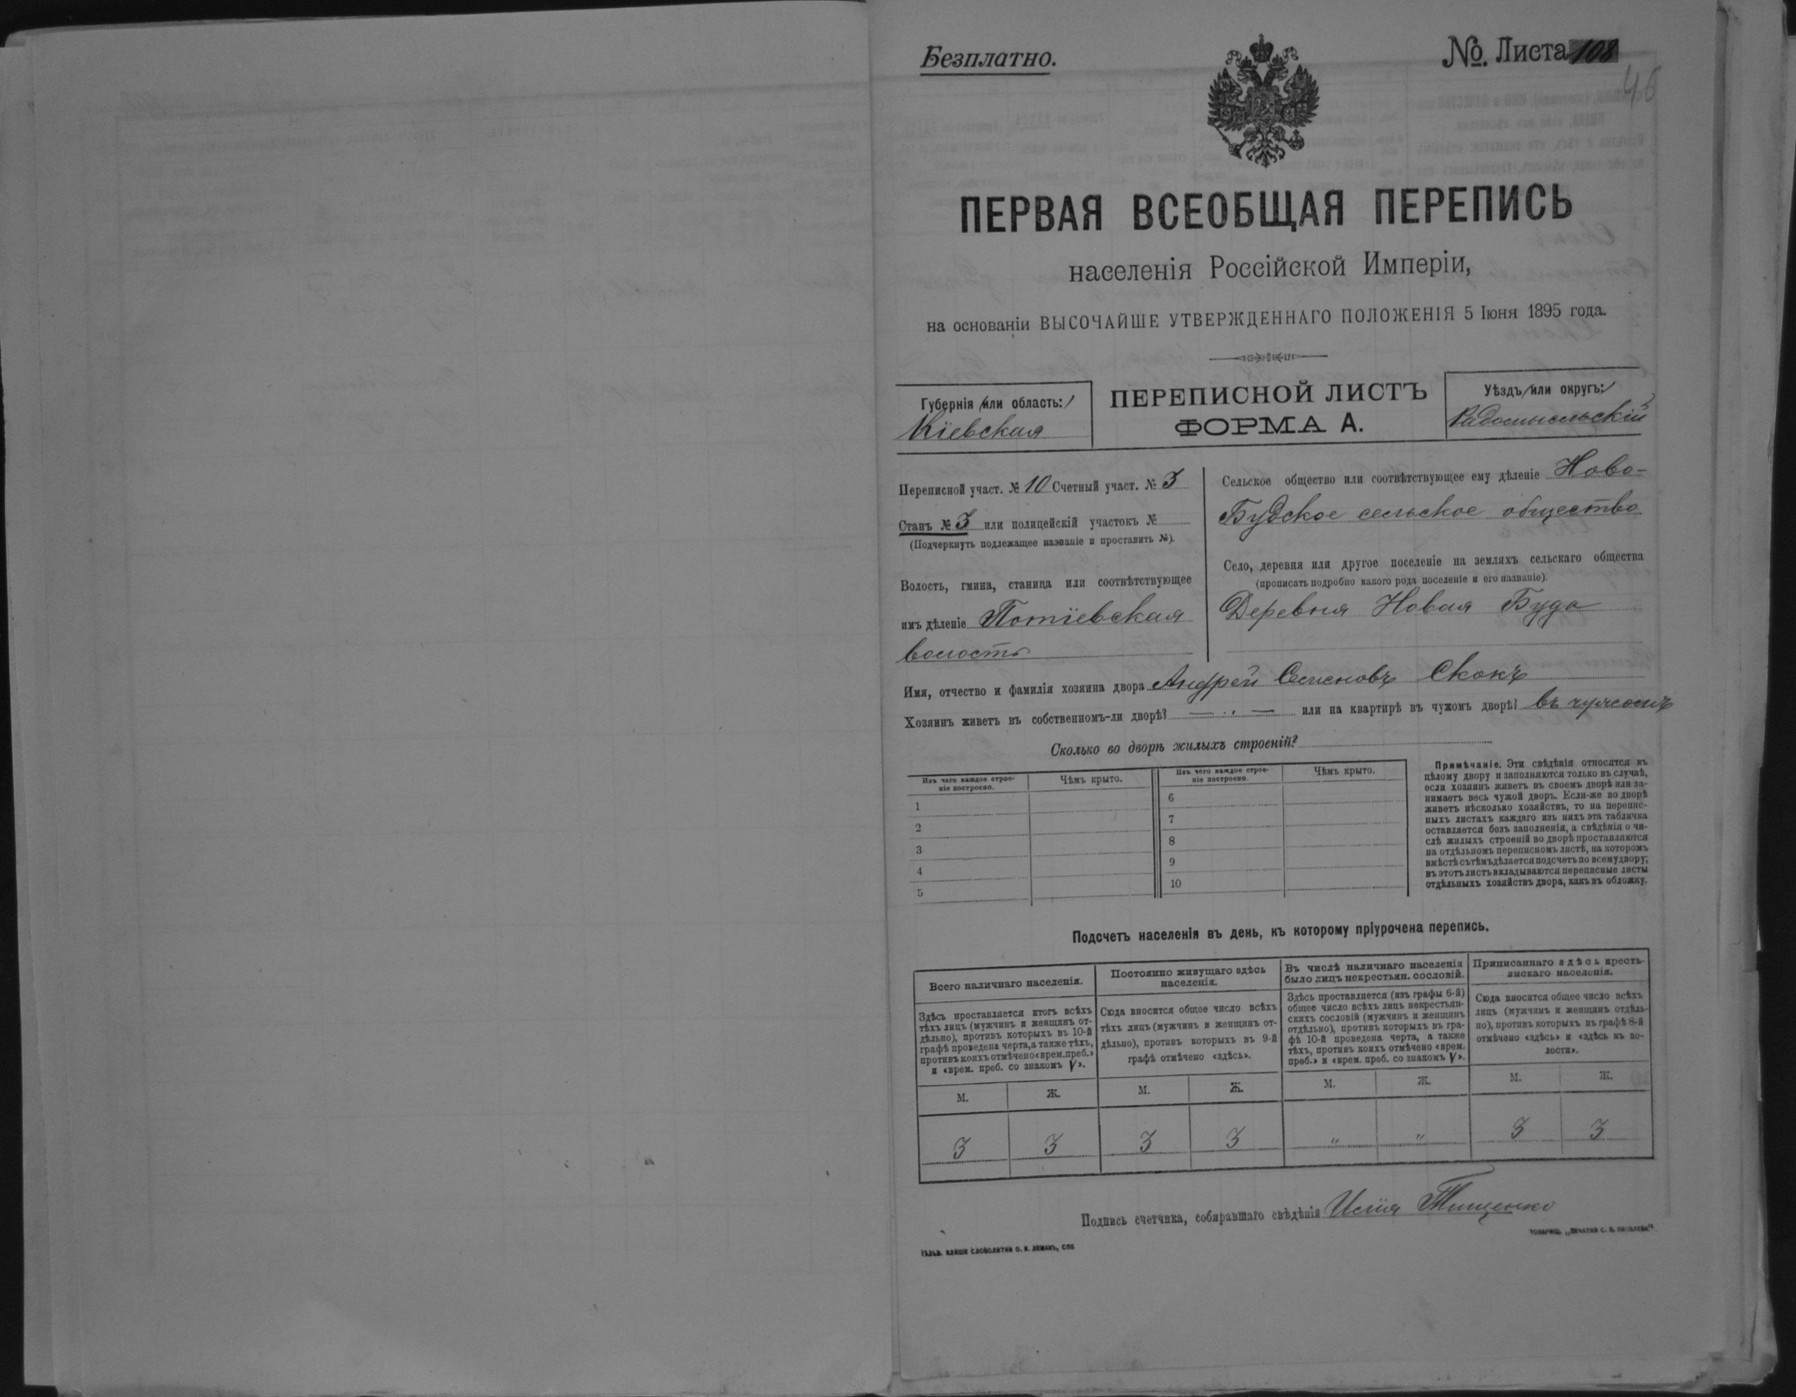 Безплатно.
№. Листа 108
46
ПЕРВАЯ ВСЕОБЩАЯ ПЕРЕПИСЬ
населенія Россійской Имперіи,
на основаніи ВЫСОЧАЙШЕ УТВЕРЖДЕННАГО ПОЛОЖЕНІЯ 5 Іюня 1895 года.
Губернія или область:
Кіевская
ПЕРЕПИСНОЙ ЛИСТЪ
ФОРМА А.
Уѣздъ или округъ:
Радомысльскій
Переписной участ. № 10 Счетный участ. № 3
Станъ № 3 или полицейскій участокъ №
(Подчеркнуть подлежащее названіе и проставить №).
Волость, гмина, станица или соотвѣтствующее
имъ дѣленіе Потіевская
волость
Сельское общество или соотвѣтствующее ему дѣленіе Ново-
Будское сельское общество
Село, деревня или другое поселеніе на земляхъ сельскаго общества
(прописать подробно какого рода поселеніе и его названіе).
Деревня Новая Буда
Имя, отчество и фамилія хозяина двора Андрей Семеновъ Скокъ
Хозяинъ живетъ въ собственномъ-ли дворѣ? — . — или на квартирѣ въ чужомъ дворѣ? въ чужомъ
Сколько во дворѣ жилыхъ строеній?
Изъ чего каждое строе-
ніе построено.
Чѣмъ крыто.
Изъ чего каждое строе-
ніе построено.
Чѣмъ крыто.
1
2
3
4
5
6
7
8
9
10
Примѣчаніе. Эти свѣдѣнія относятся къ
цѣлому двору и заполняются только въ случаѣ,
если хозяинъ живетъ въ своемъ дворѣ или за-
нимаетъ весь чужой дворъ. Если-же во дворѣ
живетъ нѣсколько хозяйствъ, то на перепис-
ныхъ листахъ каждаго изъ нихъ эта табличка
оставляется безъ заполненія, а свѣдѣнія о чи-
слѣ жилыхъ строеній во дворѣ проставляются
на отдѣльномъ переписномъ листѣ, на которомъ
вмѣстѣ съ тѣмъ дѣлается подсчетъ по всему двору;
въ этотъ листъ вкладываются переписные листы
отдѣльныхъ хозяйствъ двора, какъ въ обложку.
Подсчетъ населенія въ день, къ которому пріурочена перепись.
Всего наличнаго населенія.
Здѣсь проставляется итогъ всѣхъ
тѣхъ лицъ (мужчинъ и женщинъ от-
дѣльно), противъ которыхъ въ 10-й
графѣ проведена черта, а также тѣхъ,
противъ коихъ отмѣчено «врем. преб.»
и «врем. преб. со знакомъ V».
Постоянно живущаго здѣсь
населенія.
Сюда вносится общее число всѣхъ
тѣхъ лицъ (мужчинъ и женщинъ от-
дѣльно), противъ которыхъ въ 9-й
графѣ отмѣчено «здѣсь».
Въ числѣ наличнаго населенія
было лицъ некрестьян. сословій.
Здѣсь проставляется (изъ графы 6-й)
общее число всѣхъ лицъ некрестьян-
скихъ сословій (мужчинъ и женщинъ
отдѣльно), противъ которыхъ въ гра-
фѣ 10-й проведена черта, а также
тѣхъ, противъ коихъ отмѣчено «врем.
преб.» и «врем. преб. со знакомъ V».
Приписаннаго здѣсь кресть-
янскаго населенія.
Сюда вносится общее число всѣхъ
лицъ (мужчинъ и женщинъ отдѣль-
но), противъ которыхъ въ графѣ 8-й
отмѣчено «здѣсь» и «здѣсь въ во-
лости».
М. Ж. М. Ж. М. Ж. М. Ж.
3 3 3 3 " " 3 3
Подпись счетчика, собиравшаго свѣдѣнія Илія Тищенко